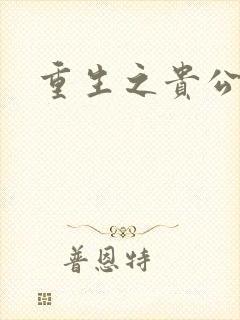 重生之貴公
普恩特